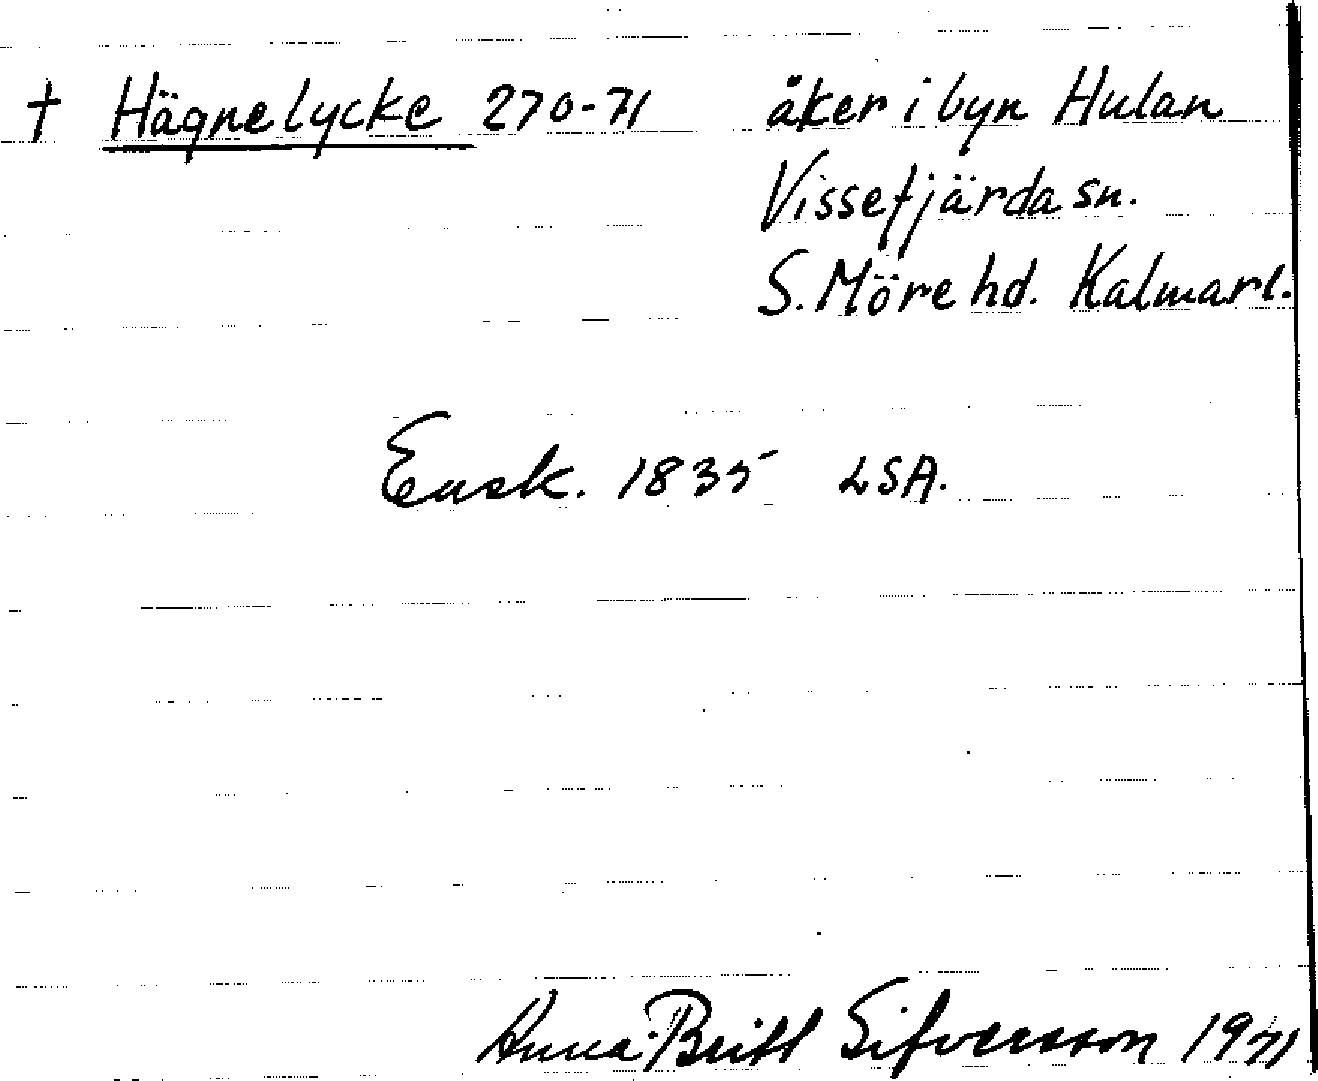 † Hägnelycke 270-71 åker i byn Hulan
Vissefjärda sn.
S. Möre hd. Kalmar l.
Ensk. 1835 LSA.
Anna-Britt Sifversson 1971